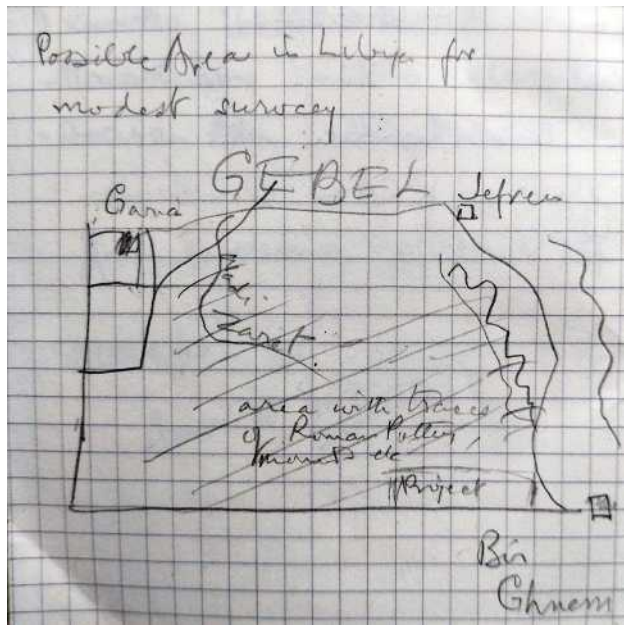 Possible Area in Libya for
modest survey
GEBEL
Jefren
Gama
Wadi
Zaret
area with traces
of Roman Pottery,
mounts etc
Project
Bir
Ghnem